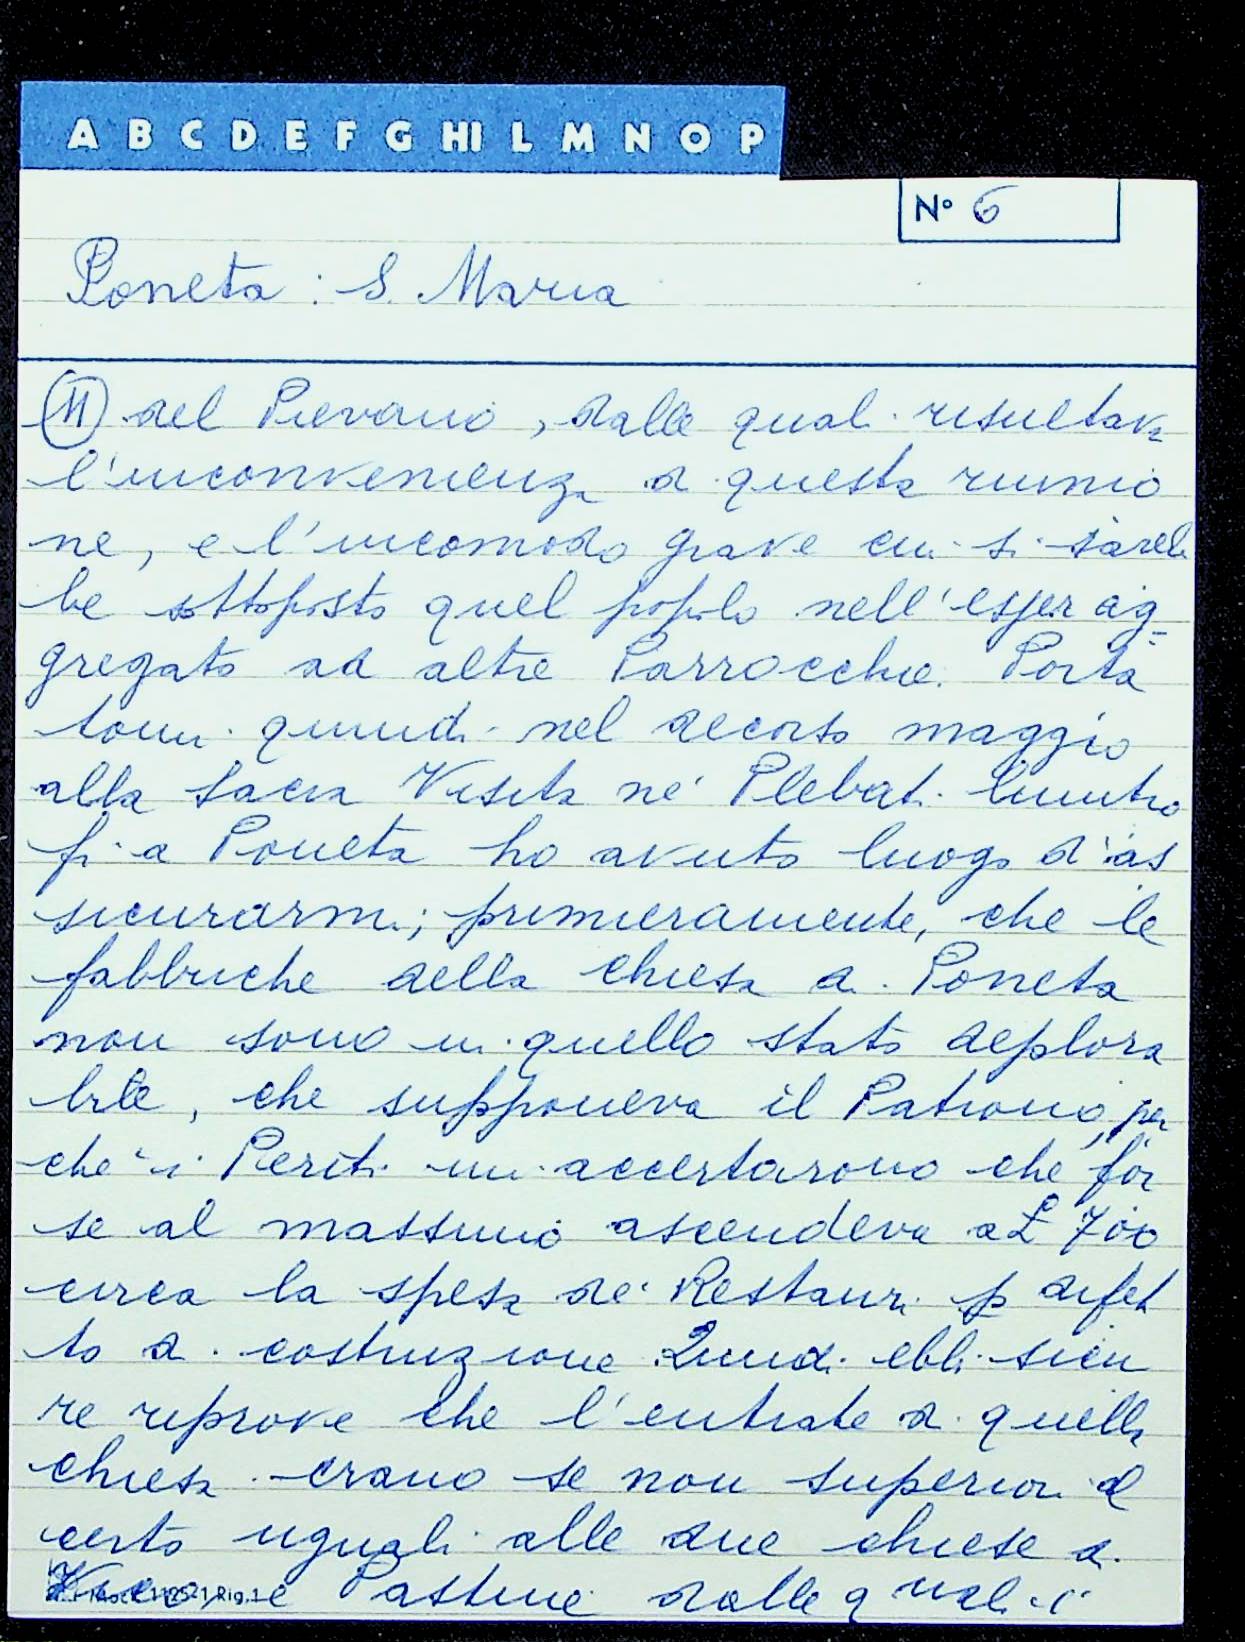 A B C D E F G HI L M N O P
N° 6
Poneta : S. Maria
II del Pievano, dalle quali risultava
l'inconvenienza di questa riunio
ne, e l'incomodo grave cui si sareb
be sottoposto quel popolo nell'esser ag=
gregato ad altre Parrocchie. Porta
tomi quindi nel decorso maggio
alla Sacra Visita ne' Plebati limitro
fi a Poneta ho avuto luogo d'as
sicurarmi; primieramente, che le
fabbriche della chiesa di Poneta
non sono in quello stato deplora
bile, che supponeva il Patrono, per
che i Periti mi accertarono che for
se al massimo ascendeva a £ 700
circa la spesa de' Restauri p difet
to di costruzione. Quindi ebbi sicu
re riprove che l'entrate di quella
chiesa erano se non superiori al
certo uguali alle due chiese di
e Pastine dalle quali